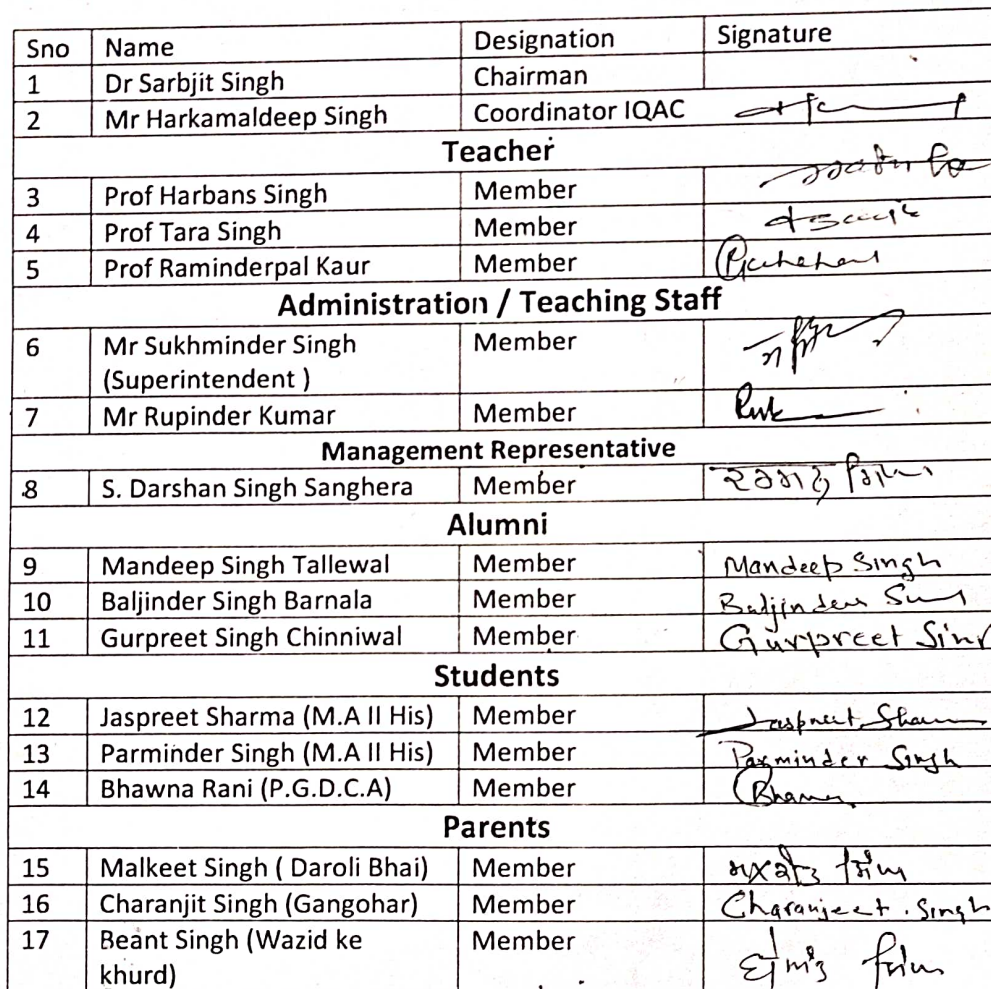 Sno Name Designation Signature
1 Dr Sarbjit Singh Chairman
2 Mr Harkamaldeep Singh Coordinator IQAC
Teacher
3 Prof Harbans Singh Member
4 Prof Tara Singh Member
5 Prof Raminderpal Kaur Member
Administration / Teaching Staff
6 Mr Sukhminder Singh Member
(Superintendent )
7 Mr Rupinder Kumar Member
Management Representative
8 S. Darshan Singh Sanghera Member ਦਰਸ਼ਨ ਸਿੰਘ
Alumni
9 Mandeep Singh Tallewal Member Mandeep Singh
10 Baljinder Singh Barnala Member Baljinder
11 Gurpreet Singh Chinniwal Member Gurpreet
Students
12 Jaspreet Sharma (M.A II His) Member Jaspreet
13 Parminder Singh (M.A II His) Member Parminder Singh
14 Bhawna Rani (P.G.D.C.A) Member
Parents
15 Malkeet Singh ( Daroli Bhai) Member ਮਲਕੀਤ ਸਿੰਘ
16 Charanjit Singh (Gangohar) Member Charanjeet . Singh
17 Beant Singh (Wazid ke Member ਬੇਅੰਤ ਸਿੰਘ
khurd)